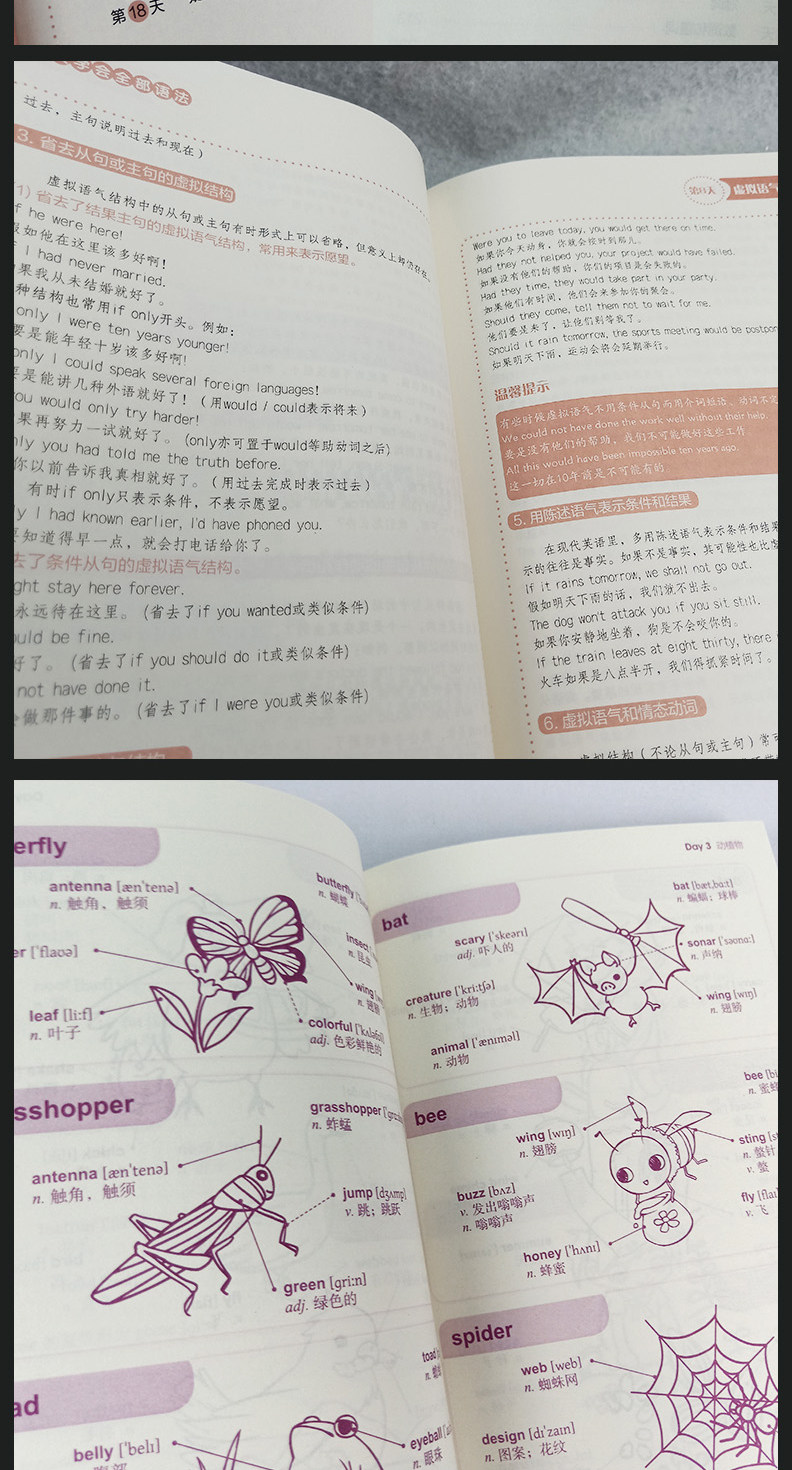 第18天
学会全部语法
过去，主句说明过去和现在）
3. 省去从句或主句的虚拟结构
虚拟语气结构中的从句或主句有时形式上可以省略，但意义上却仍存在。
1）省去了结果主句的虚拟语气结构，常用来表示愿望。
he were here!
如他在这里该多好啊！
I had never married.
果我从未结婚就好了。
种结构也常用if only开头。例如：
only I were ten years younger!
要是能年轻十岁该多好啊!
only I could speak several foreign languages!
是能讲几种外语就好了！（用would / could表示将来）
you would only try harder!
果再努力一试就好了。（only亦可置于would等助动词之后）
you had told me the truth before.
你以前告诉我真相就好了。（用过去完成时表示过去）
有时if only只表示条件，不表示愿望。
I had known earlier, I'd have phoned you.
要知道得早一点，就会打电话给你了。
去了条件从句的虚拟语气结构。
stay here forever.
永远待在这里。（省去了if you wanted或类似条件）
be fine.
好了。（省去了if you should do it或类似条件）
not have done it.
做那件事的。（省去了if I were you或类似条件）
虚拟语气
Were you to leave today, you would get there on time.
如果你今天动身，你就会按时到那儿。
Had they not helped you, your project would have failed.
如果没有他们的帮助，你们的项目是会失败的。
Had they time, they would take part in your party.
如果他们有时间，他们会来参加你的聚会。
Should they come, tell them not to wait for me.
他们要是来了，让他们别等我了。
Should it rain tomorrow, the sports meeting would be
如果明天下雨，运动会将会延期举行。
温馨提示
有些时候虚拟语气不用条件从句而用介词短语、动词不定
We could not have done the work well without their help.
要是没有他们的帮助，我们不可能做好这些工作
All this would have been impossible ten years ago.
这一切在10年前是不可能有的
5. 用陈述语气表示条件和结果
在现代英语里，多用陈述语气表示条件和结果
示的往往是事实。如果不是事实，其可能性也比虚
If it rains tomorrow, we shall not go out.
假如明天下雨的话，我们就不出去。
The dog won't attack you if you sit still.
如果你安静地坐着，狗是不会咬你的。
If the train leaves at eight thirty, there
火车如果是八点半开，我们得抓紧时间了。
6. 虚拟语气和情态动词
虚拟结构（不论从句或主句）常可
erfly
antenna [æn'tenə]
n. 触角，触须
butterfly
n. 蝴蝶
insect
n. 昆虫
['flaʊə]
wing
n. 翅膀
leaf [li:f]
n. 叶子
colorful
adj. 色彩鲜艳的
sshopper
grasshopper
n. 蚱蜢
antenna [æn'tenə]
n. 触角，触须
jump [dʒʌmp]
v. 跳；跳跃
green [gri:n]
adj. 绿色的
ad
toad
belly ['belɪ]
eyeball
n. 眼珠
Day 3 动植物
bat
bat [bæt,bɑ:t]
n. 蝙蝠；球棒
scary ['skeərɪ]
adj. 吓人的
sonar ['səʊnɑ:]
n. 声纳
creature ['kri:tʃə]
n. 生物；动物
wing [wɪŋ]
n. 翅膀
animal ['ænɪməl]
n. 动物
bee
bee
n. 蜜蜂
wing [wɪŋ]
n. 翅膀
sting
n. 螫针
v. 螫
buzz [bʌz]
v. 发出嗡嗡声
n. 嗡嗡声
fly
v. 飞
honey ['hʌnɪ]
n. 蜂蜜
spider
web [web]
n. 蜘蛛网
design [dɪ'zaɪn]
n. 图案；花纹